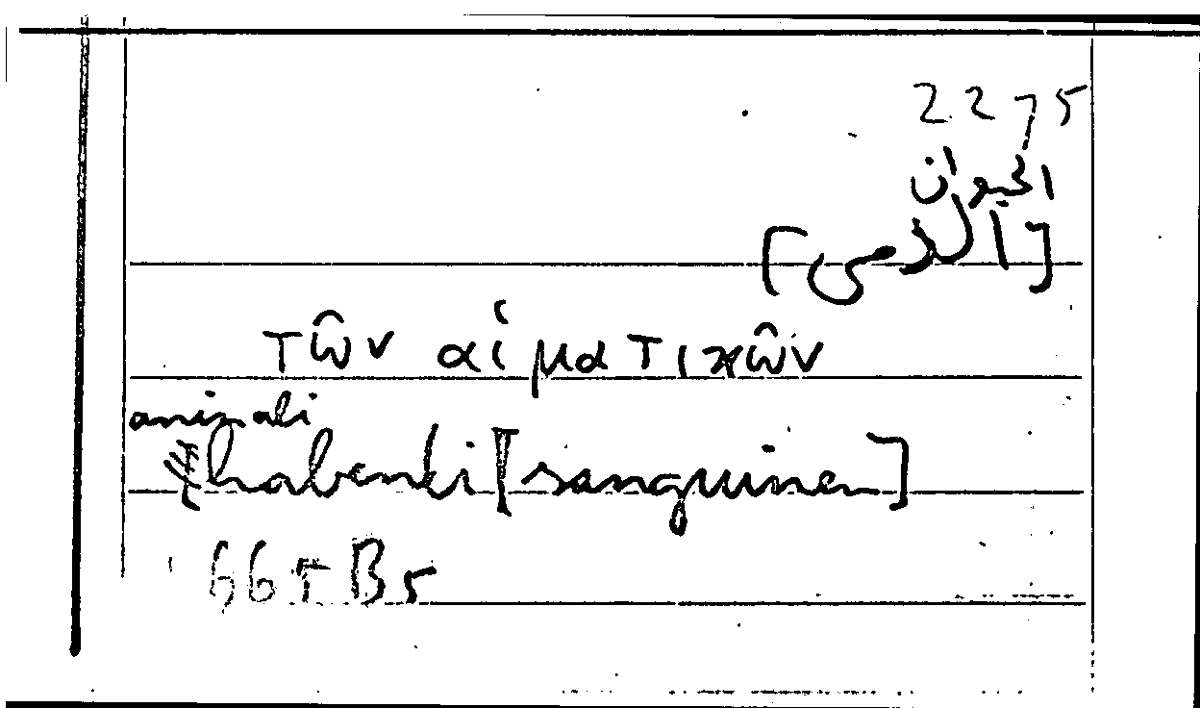 2275
الحيوان
[الدمى]
τῶν αἱματικῶν
animali
habenti [sanguinem]
665 B5